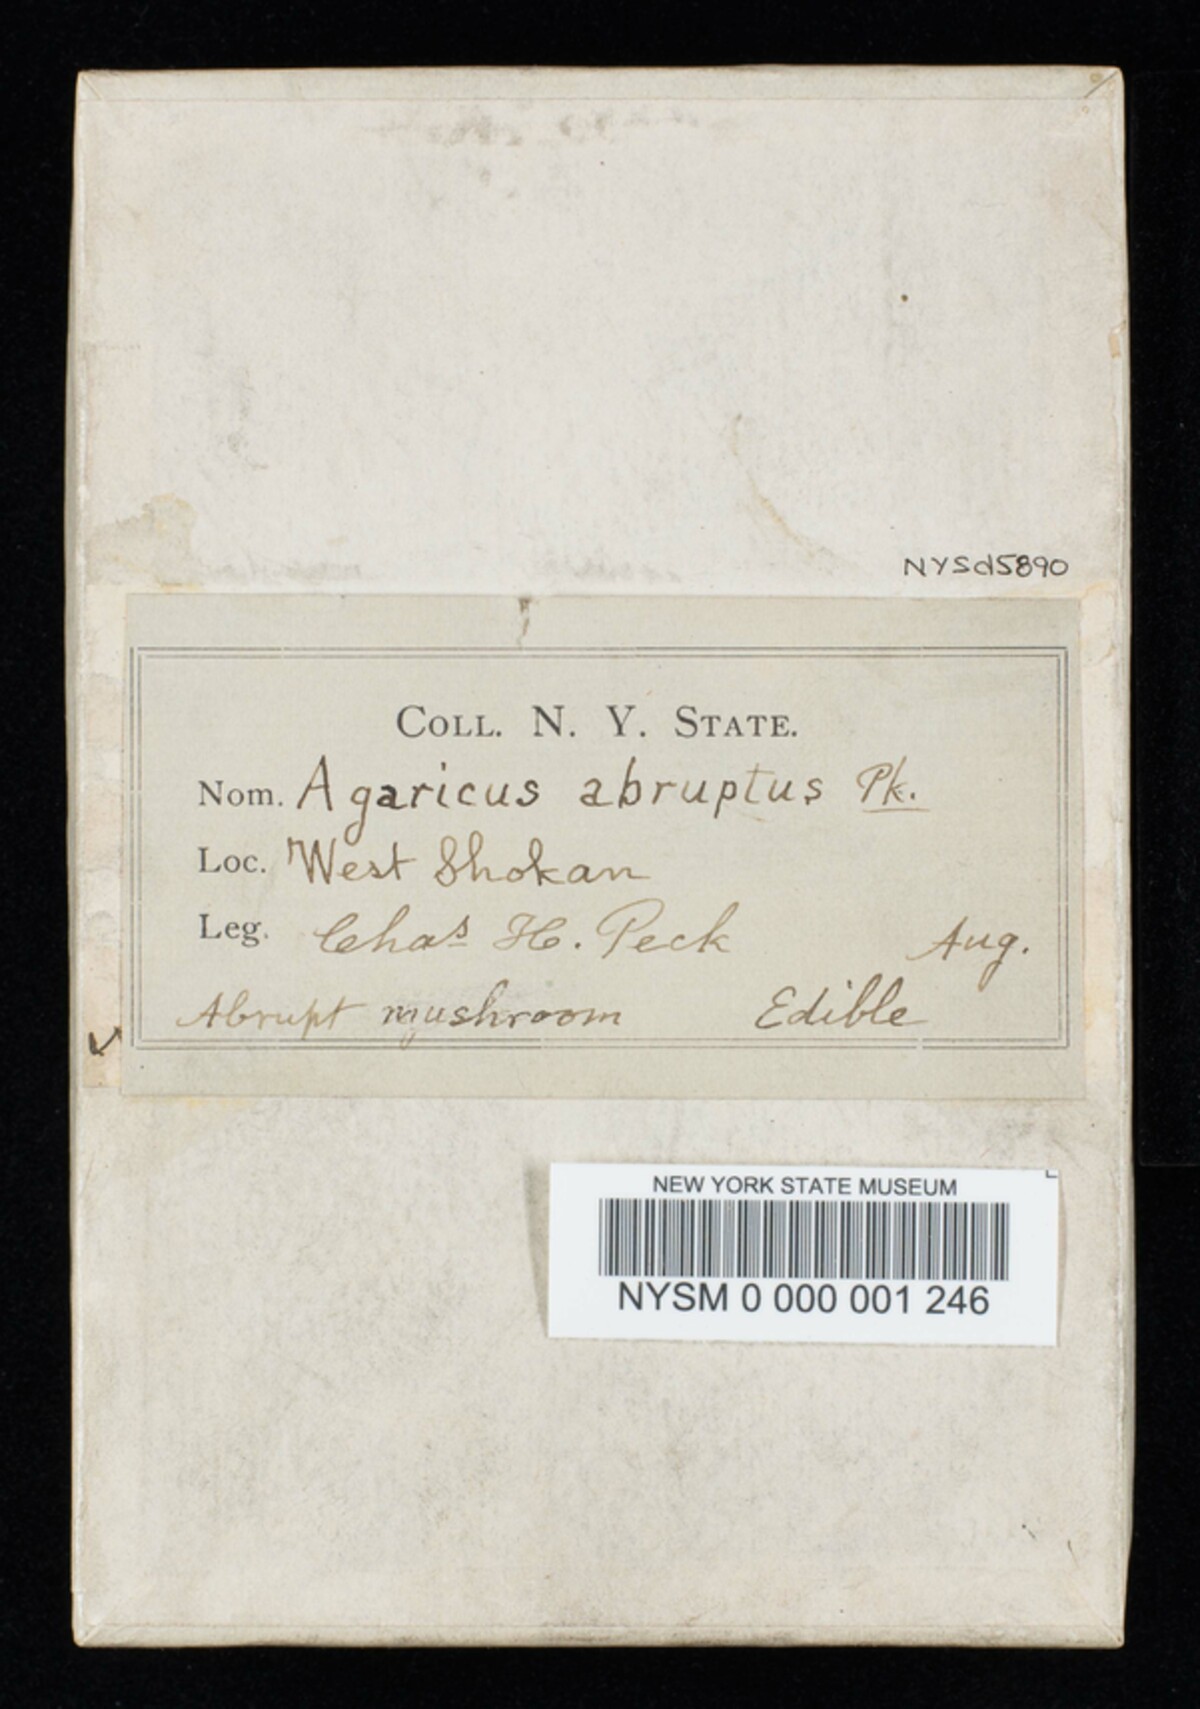 NYSd5890
COLL. N. Y. STATE.
Nom. Agaricus abruptus Pk.
Loc. West Shokan
Leg. Chas H. Peck Aug.
Abrupt mushroom Edible
NEW YORK STATE MUSEUM
NYSM 0 000 001 246